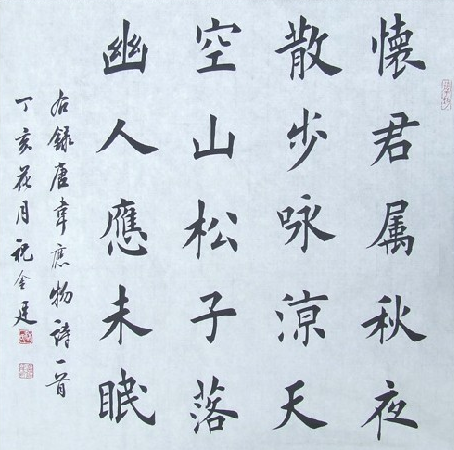 懷君属秋夜
散步咏涼天
空山松子落
幽人應未眠
右錄唐韋應物詩一首
丁亥花月祝金廷